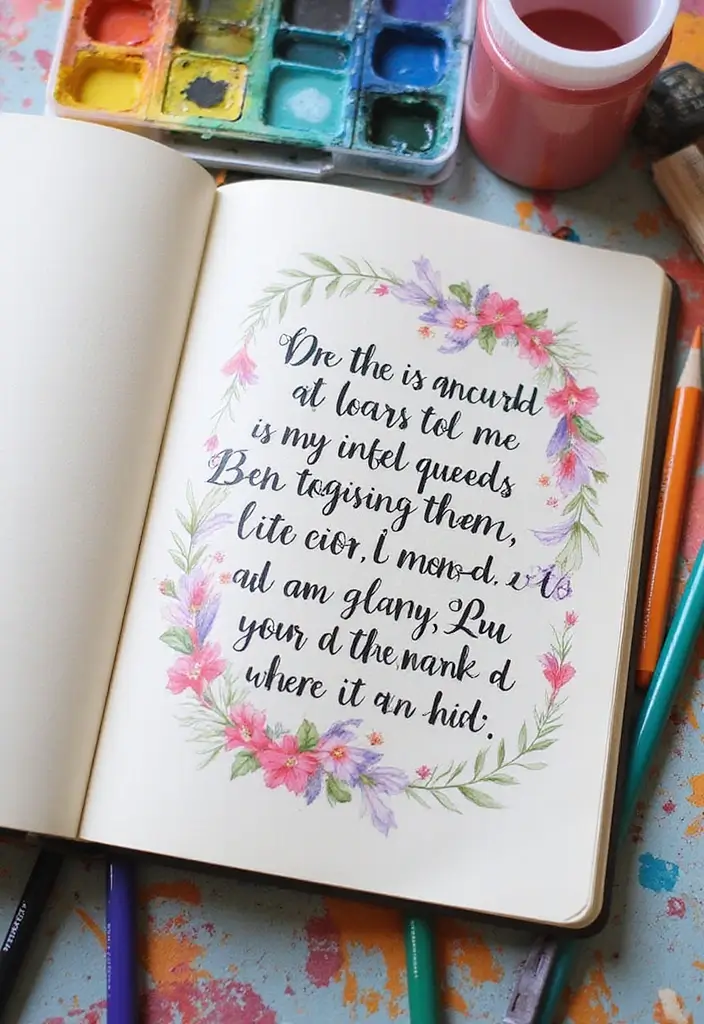 Dre the is ancurld
at loars tol me
is my infel queeds
Ben togising them,
lite eior, I mons-d.
ad am glany, Luu
your d the, nank d
where it an hid.